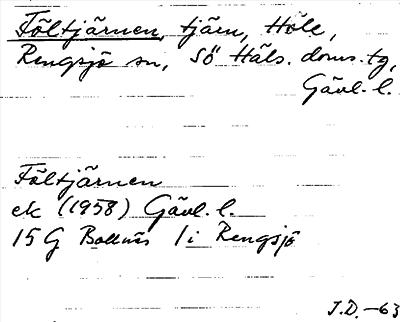 Föltjärnen, tjärn, Höle,
Rengsjö sn, Sö Häls. doms.tg,
Gävl. l.
Föltjärnen
ek (1958) Gävl. l.
15 G Bollnäs 1 i Rengsjö
J.D. -63